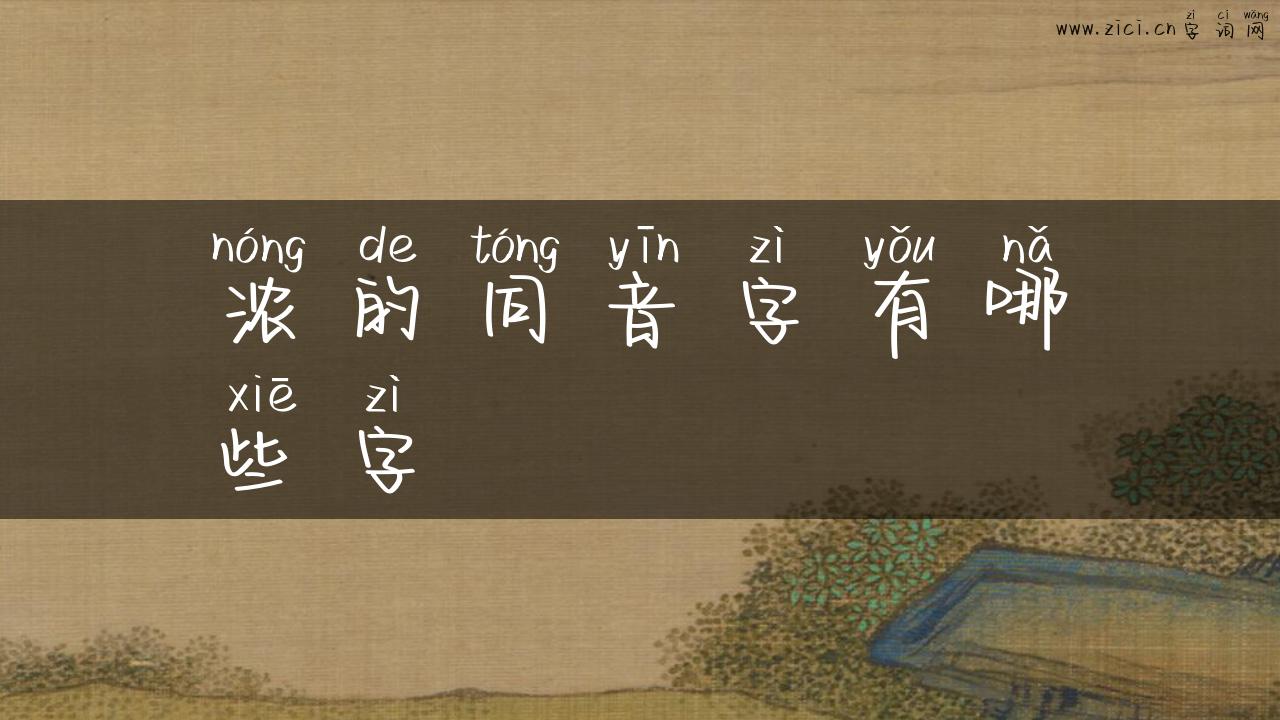 zì cí wǎng
www.zici.cn 字词网
nóng de tóng yīn zì yǒu nǎ
浓的同音字有哪
xiē zì
些字